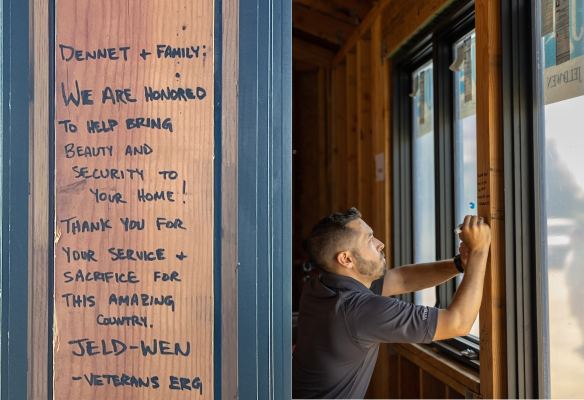 DENNET + FAMILY:
WE ARE HONORED
TO HELP BRING
BEAUTY AND
SECURITY TO
YOUR HOME!
THANK YOU FOR
YOUR SERVICE +
SACRIFICE FOR
THIS AMAZING
COUNTRY.
JELD-WEN
-VETERANS ERG
JELDWEN